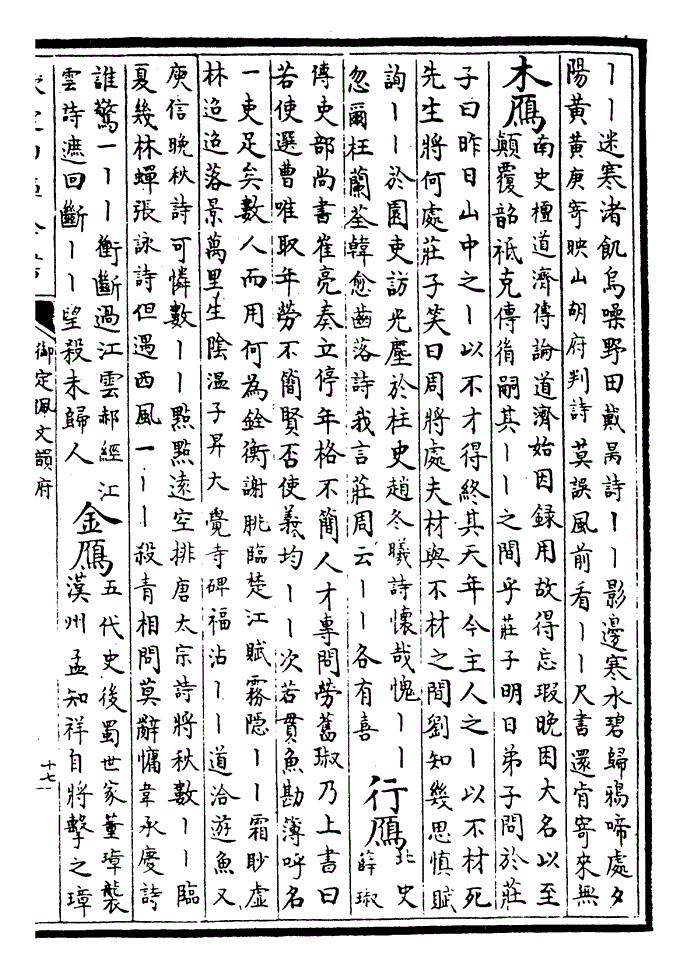 丨丨迷寒渚飢烏噪野田戴昺詩丨丨影邊寒水碧歸鴉啼處夕
陽黃黃庚寄映山胡府判詩莫誤風前看丨丨尺書還肯寄來無
木鴈
南史檀道濟傳論道濟始因録用故得忘瑕晚困大名以至
顛覆韶祗克傳胤嗣其丨丨之間乎莊子明日弟子問於莊
子曰昨日山中之丨以不才得終其天年今主人之丨以不材死
先生將何處莊子笑曰周將處夫材與不材之間劉知幾思慎賦
詢丨丨於園吏訪光塵於柱史趙冬曦詩懷哉愧丨丨
忽爾枉蘭荃韓愈齒落詩我言莊周云丨丨各有喜
行鴈
北史
薛琡
傳吏部尚書崔亮奏立停年格不簡人才專問勞舊琡乃上書曰
若使選曹唯取年勞不簡賢否使義均丨丨次若貫魚勘簿呼名
一吏足矣數人而用何為銓衡謝朓臨楚江賦霧隠丨丨霜眇虚
林迢迢落景萬里生陰温子昇大覺寺碑福沾丨丨道洽遊魚又
庾信晚秋詩可憐數丨丨點點遠空排唐太宗詩將秋數丨丨臨
夏幾林蟬張詠詩但遇西風一丨丨殺青相問莫辭慵韋承慶詩
誰驚一丨丨衝斷過江雲郝經江
雲詩遮回斷丨丨望殺未歸人
金鴈
五代史後蜀世家董璋襲
漢州孟知祥自將擊之璋
御定佩文韻府
十七